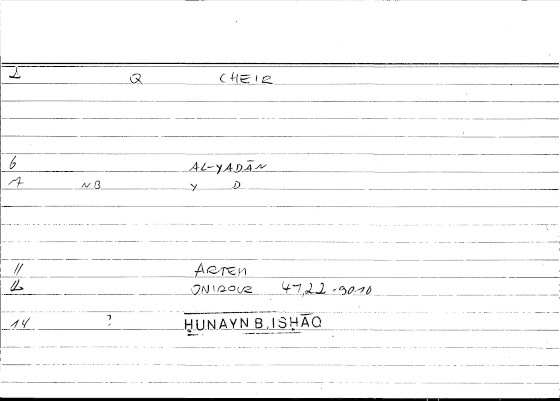 1 Q CHEIR
6 AL-YADĀN
7 NB Y D
11 ARTEM
12 ONIROCR 47,22 - 90.10
14 ? ḤUNAYN B. ISḤĀQ